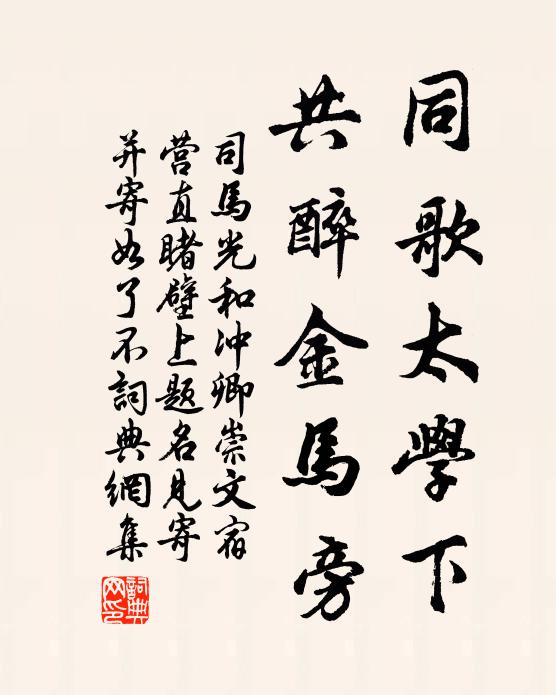 同歌太學下
共醉金馬旁
司馬光和冲卿崇文宿
营直睹壁上题名見寄
并寄如了不詞典網集
詞典
网印